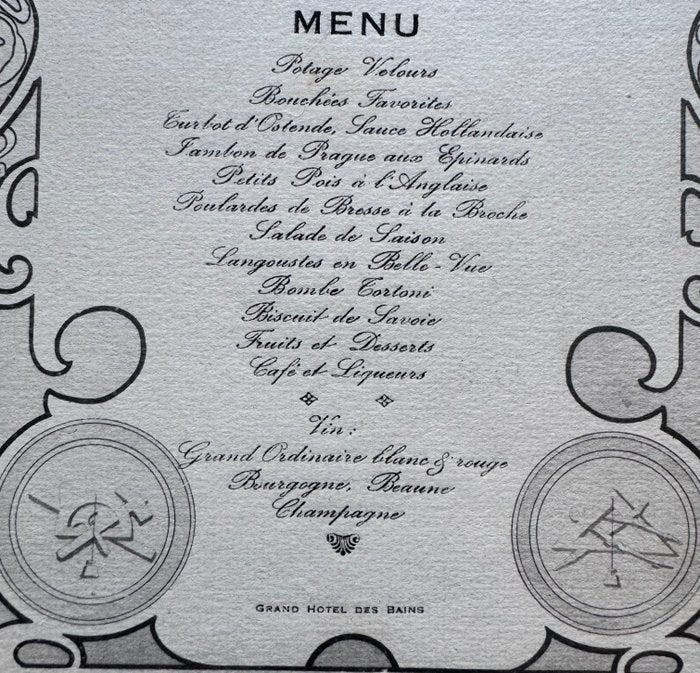 MENU
Potage Velours
Bouchées Favorites
Turbot d'Ostende, Sauce Hollandaise
Jambon de Prague aux Epinards
Petits Pois à l'Anglaise
Poulardes de Bresse à la Broche
Salade de Saison
Langoustes en Belle-Vue
Bombe Tortoni
Biscuit de Savoie
Fruits et Desserts
Café et Liqueurs
Vin:
Grand Ordinaire blanc & rouge
Bourgogne, Beaune
Champagne
GRAND HOTEL DES BAINS